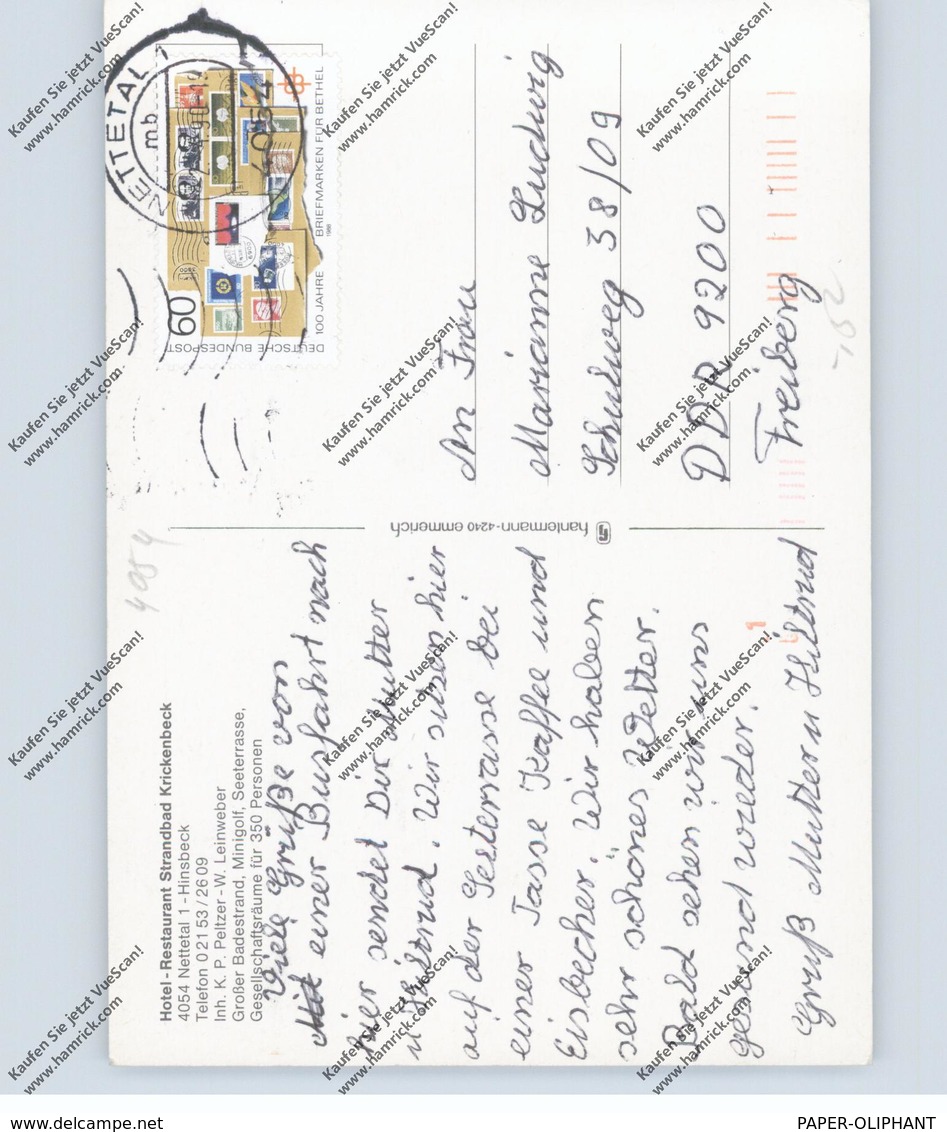 Hotel - Restaurant Strandbad Krickenbeck
4054 Nettetal 1 - Hinsbeck
Telefon 0 21 53 / 26 09
Inh. K. P. Peltzer - W. Leinweber
Großer Badestrand, Minigolf, Seeterrasse,
Gesellschaftsräume für 350 Personen
Viele Grüße von
Mit einer Busfahrt nach
hier sendet Dir Mutter
u Hiltrud. Wir sitzen hier
auf der Seeterrasse bei
einer Tasse Kaffee und
Eisbecher. Wir haben
sehr schönes Wetter.
Bald sehen wir uns
gesund wieder.
Gruß Mutter u Hiltrud
hanlermann - 4240 emmerich
4054
NETTETAL 1
mb
4054
60
DEUTSCHE BUNDESPOST
100 JAHRE BRIEFMARKEN FÜR BETHEL
1988
An Frau
Marianne Ludwig
Schulweg 38/09
DDR 9200
Freiberg
-,52
Kaufen Sie jetzt VueScan!
www.hamrick.com
www.delcampe.net
PAPER-OLIPHANT